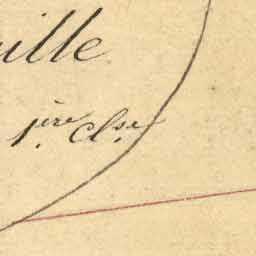 ille
1.ère Cl.se